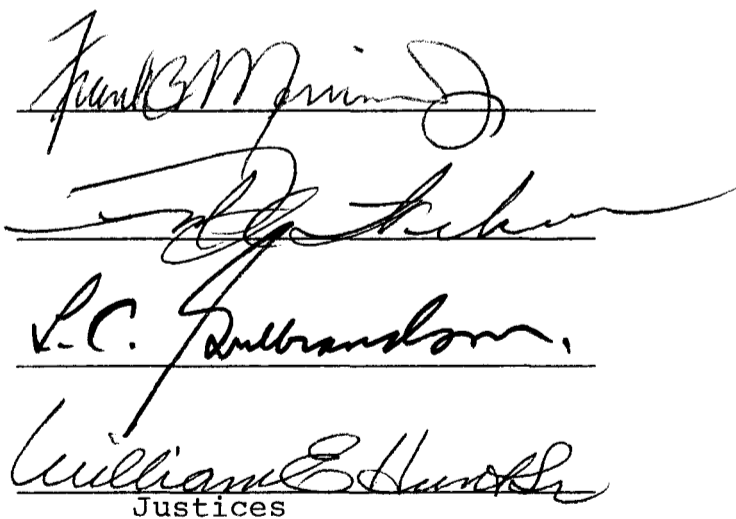 Frank B Morrison Jr
L.C. Gulbrandson.
William E Hunt Sr
Justices